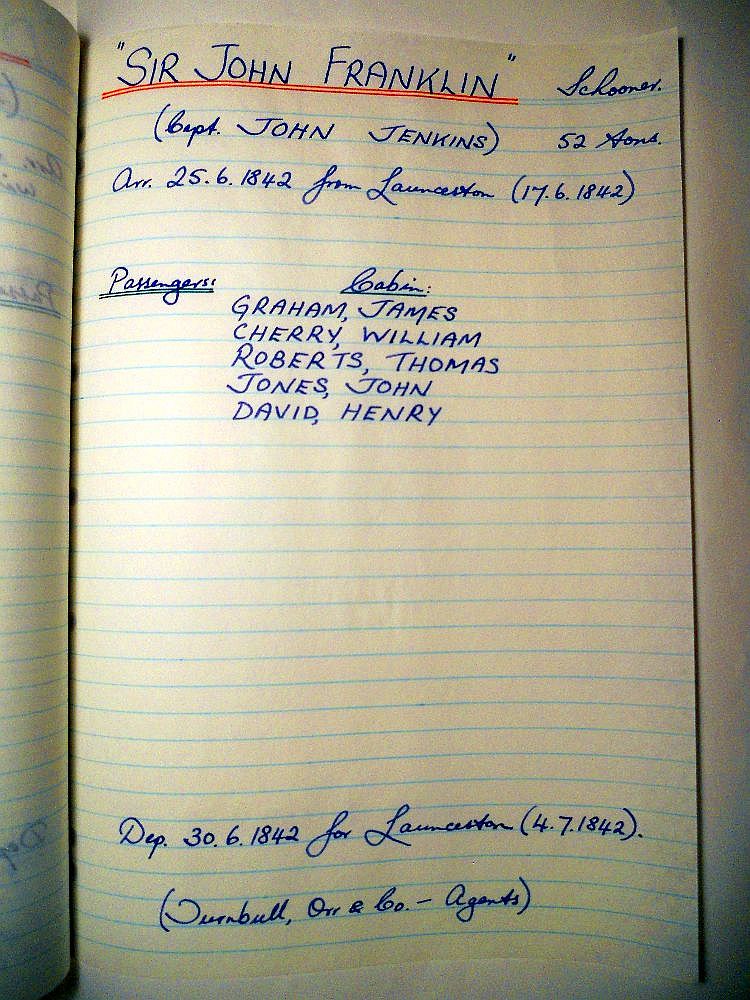 "SIR JOHN FRANKLIN" Schooner.
(Capt. JOHN JENKINS) 52 Tons.
Arr. 25.6.1842 from Launceston (17.6.1842)
Passengers: Cabin:
GRAHAM, JAMES
CHERRY, WILLIAM
ROBERTS, THOMAS
JONES, JOHN
DAVID, HENRY
Dep. 30.6.1842 for Launceston (4.7.1842).
(Turnbull, Orr & Co. – Agents)